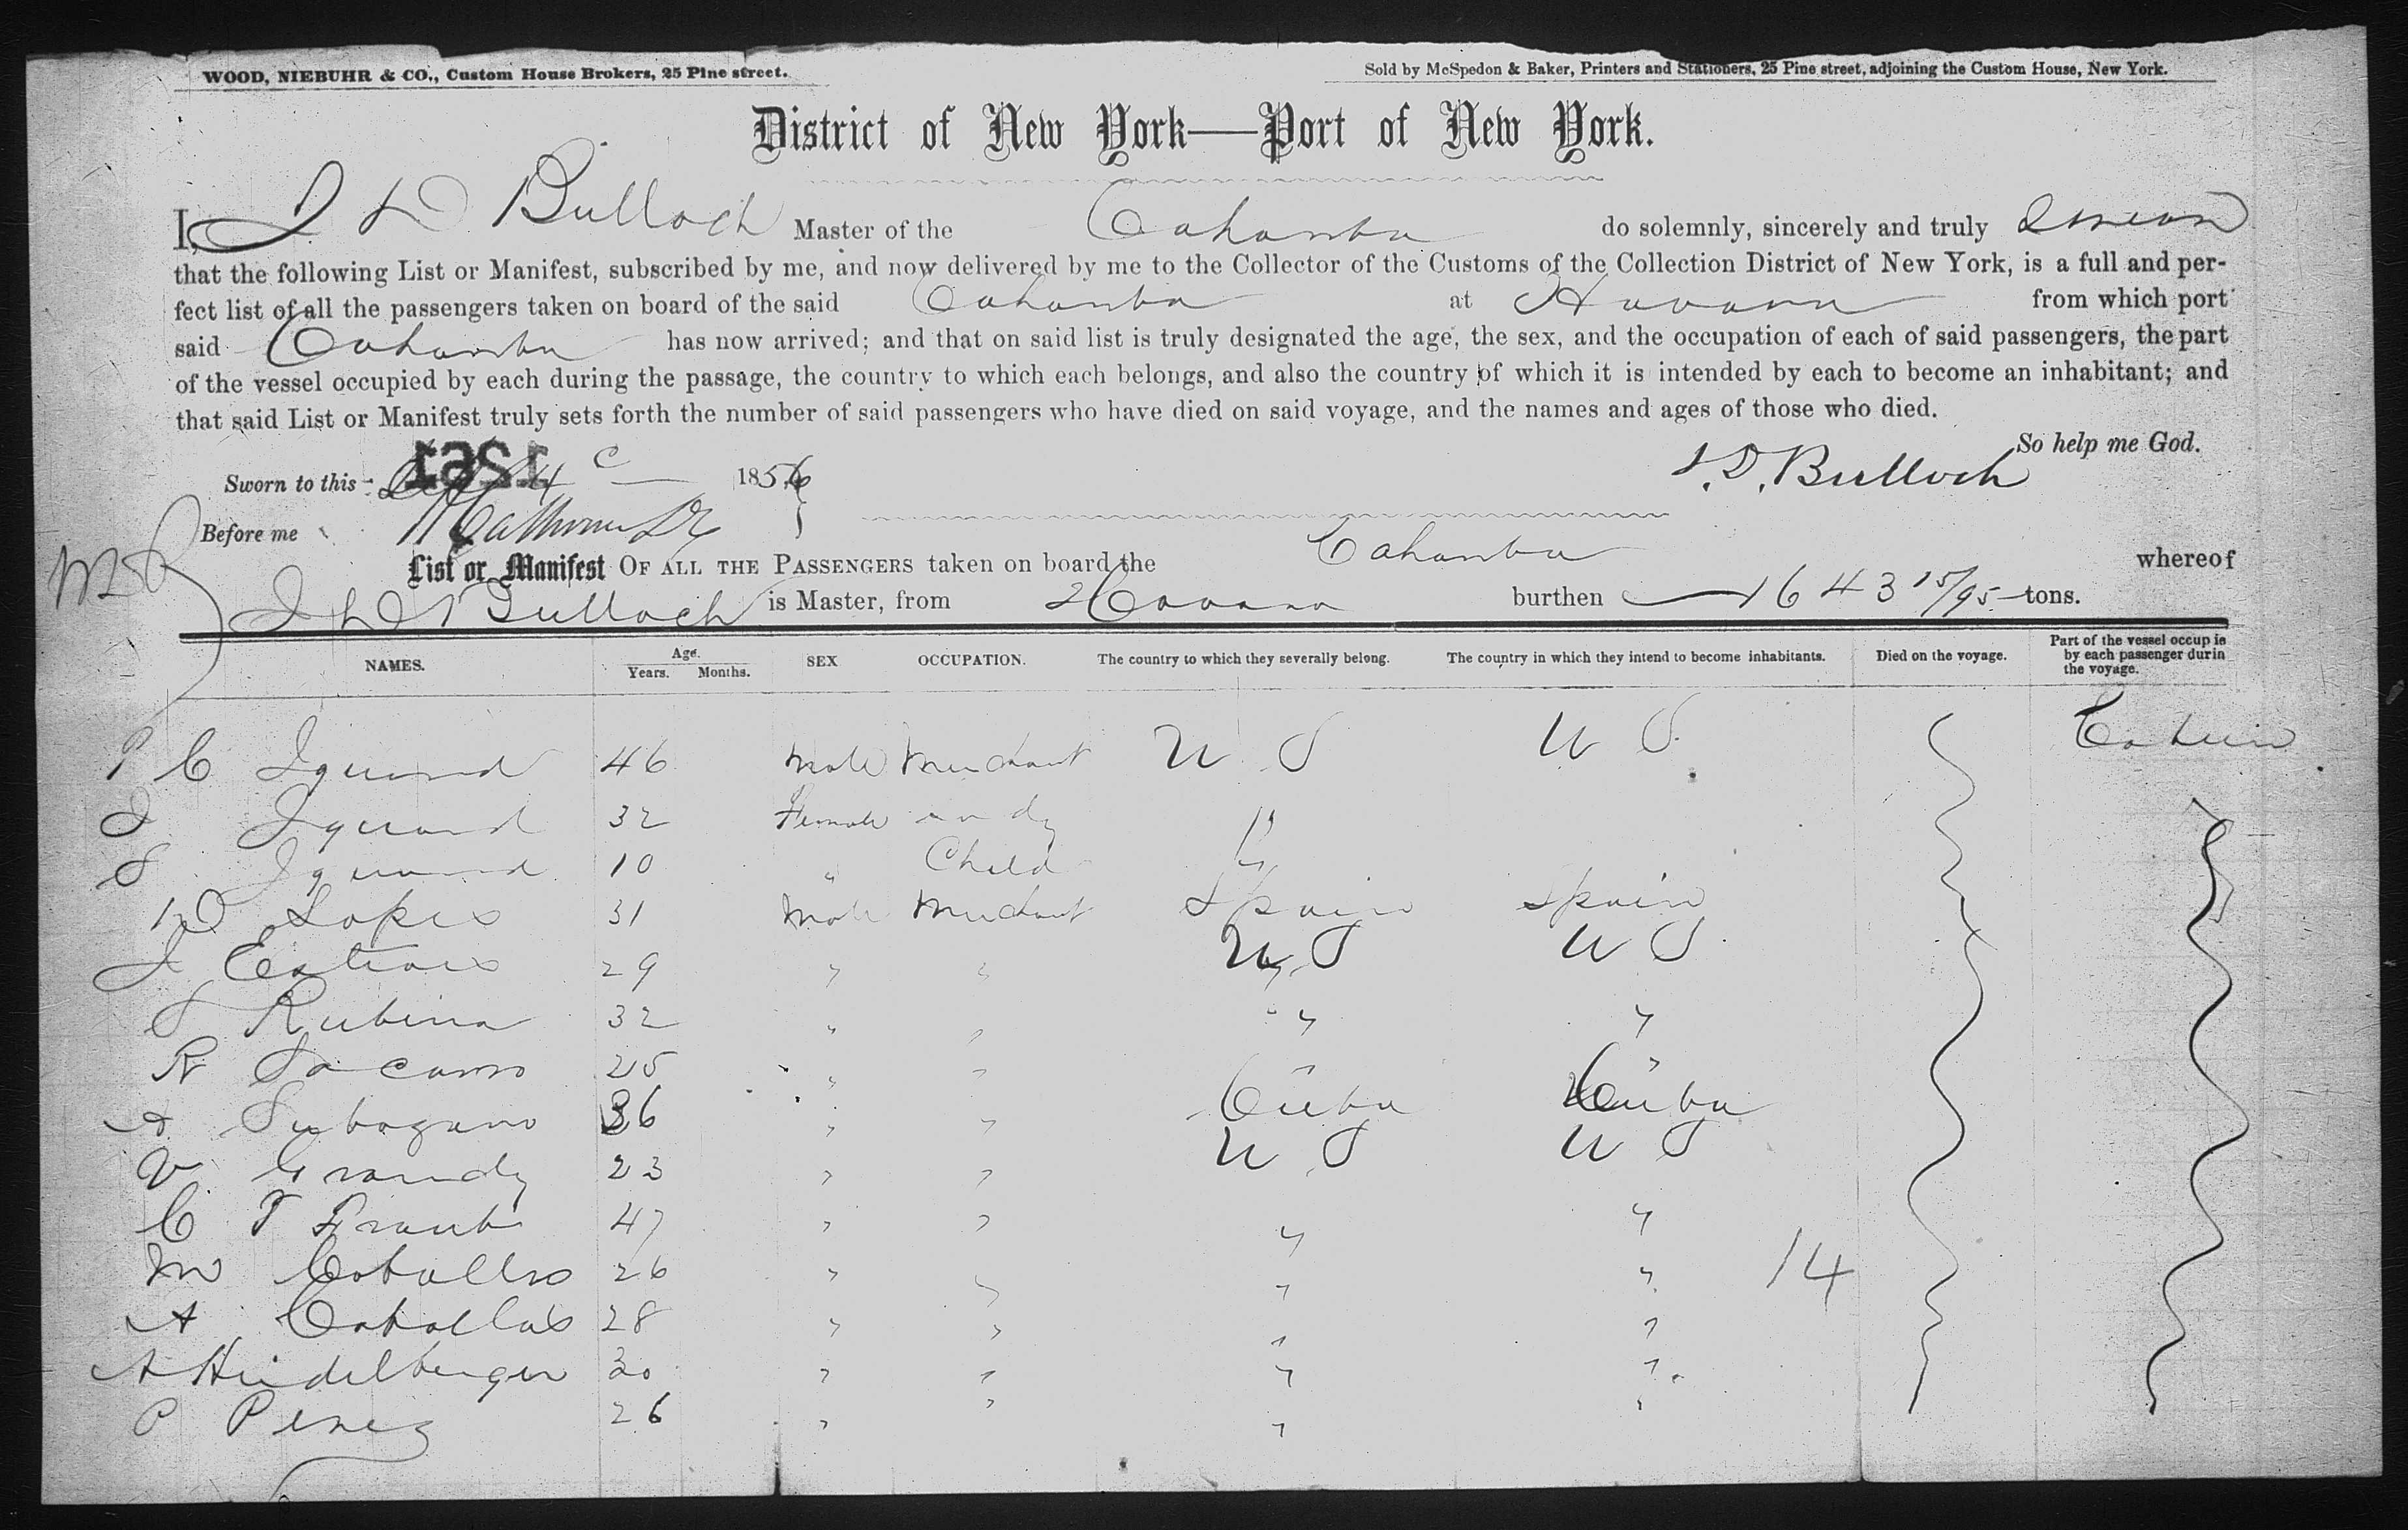 WOOD, NIEBUHR & CO., Custom House Brokers, 25 Pine street.
Sold by McSpedon & Baker, Printers and Stationers, 25 Pine street, adjoining the Custom House, New York.
District of New York—Port of New York.
I, J D Bulloch Master of the Cahawba do solemnly, sincerely and truly swear
that the following List or Manifest, subscribed by me, and now delivered by me to the Collector of the Customs of the Collection District of New York, is a full and per-
fect list of all the passengers taken on board of the said Cahawba at Havana from which port
said Cahawba has now arrived; and that on said list is truly designated the age, the sex, and the occupation of each of said passengers, the part
of the vessel occupied by each during the passage, the country to which each belongs, and also the country of which it is intended by each to become an inhabitant; and
that said List or Manifest truly sets forth the number of said passengers who have died on said voyage, and the names and ages of those who died.
So help me God.
Sworn to this 4 1856 J. D. Bulloch
Before me
List or Manifest OF ALL THE PASSENGERS taken on board the Cahawba whereof
J D Bulloch is Master, from Havana burthen 1643 15/95 tons.
NAMES. Age. Years. Months. SEX OCCUPATION. The country to which they severally belong. The country in which they intend to become inhabitants. Died on the voyage. Part of the vessel occupie by each passenger durin the voyage.
P C 46 Male Merchant U S U S Cabin
J 32 Female Lady "
S 10 " Child "
Lopes 31 Male Merchant Spain Spain
J 29 " " U S U S
S Rubina 32 " " " "
R 25 " " " "
A 36 " " Cuba Cuba
V Grandy 23 " " U S U S
C T 47 " " " "
M Caballos 26 " " " " 14
A Caballos 28 " " " "
A Heidelberger 30 " " " "
P Perez 26 " " " "